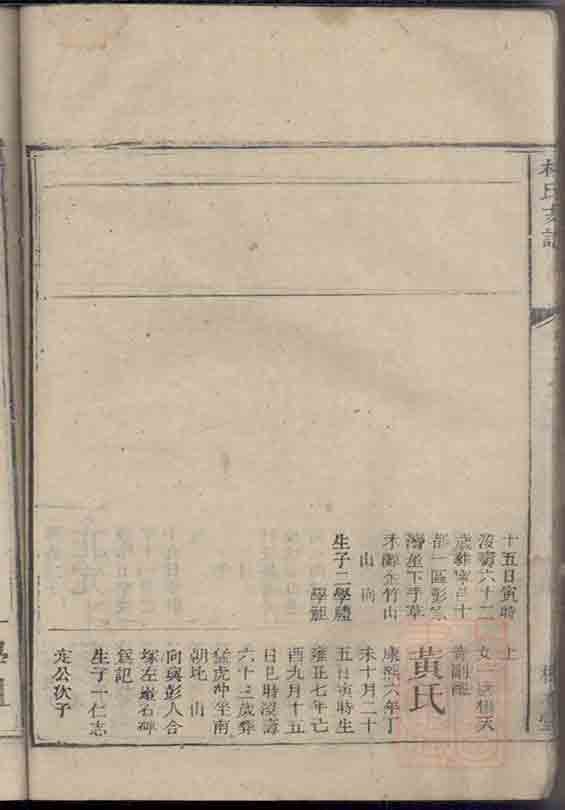 十五日寅時
歿壽六十二
歲葬寧邑十
都一區彭家
灣屋下手草
禾鄉金竹山
山向
生子二學禮
學龍
上
女一
黃氏
康熙六年丁
未十月二十
五日寅時生
雍正七年己
酉九月十五
日巳時歿壽
六十三歲葬
猛虎冲坐南
朝北山
向與彭人合
塚左嚴石碑
爲記
生子一仁志
定公次子